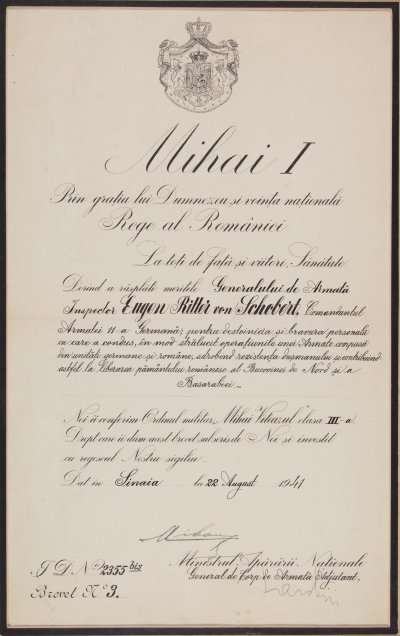 Mihai I
Prin grația lui Dumnezeu și voința națională
Rege al României
La toți de față și viitori, Sănătate
Dorind a răsplăti meritele Generalului de Armată
Inspector Eugen Ritter von Schobert, Comandantul
Armatei 11-a Germană; pentru destoinicia și bravura personală
cu care a condus, în mod strălucit operațiunile unei Armate compusă
din unități germane și române, sdrobind rezistența dușmanului și contribuind
astfel la liberarea pământului românesc al Bucovinei de Nord și a
Basarabiei.-
Noi îi conferim Ordinul militar „Mihai Viteazul" clasa III-a
Drept care îi dăm acest brevet subscris de Noi și investit
cu regescul Nostru sigiliu.
Dat în Sinaia la 22 August 1941
Mihai
Ministrul Apărării Naționale
General de Corp de Armată Adjutant.
Î.D. No 2355 bis
Brevet No 3.